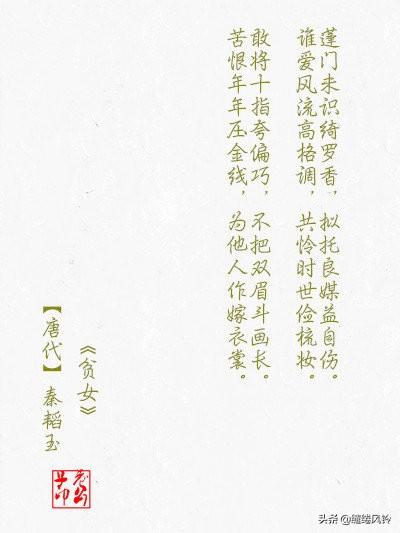 蓬门未识绮罗香，拟托良媒益自伤。
谁爱风流高格调，共怜时世俭梳妆。
敢将十指夸偏巧，不把双眉斗画长。
苦恨年年压金线，为他人作嫁衣裳。
《贫女》
【唐代】秦韬玉
头条@缱绻风铃